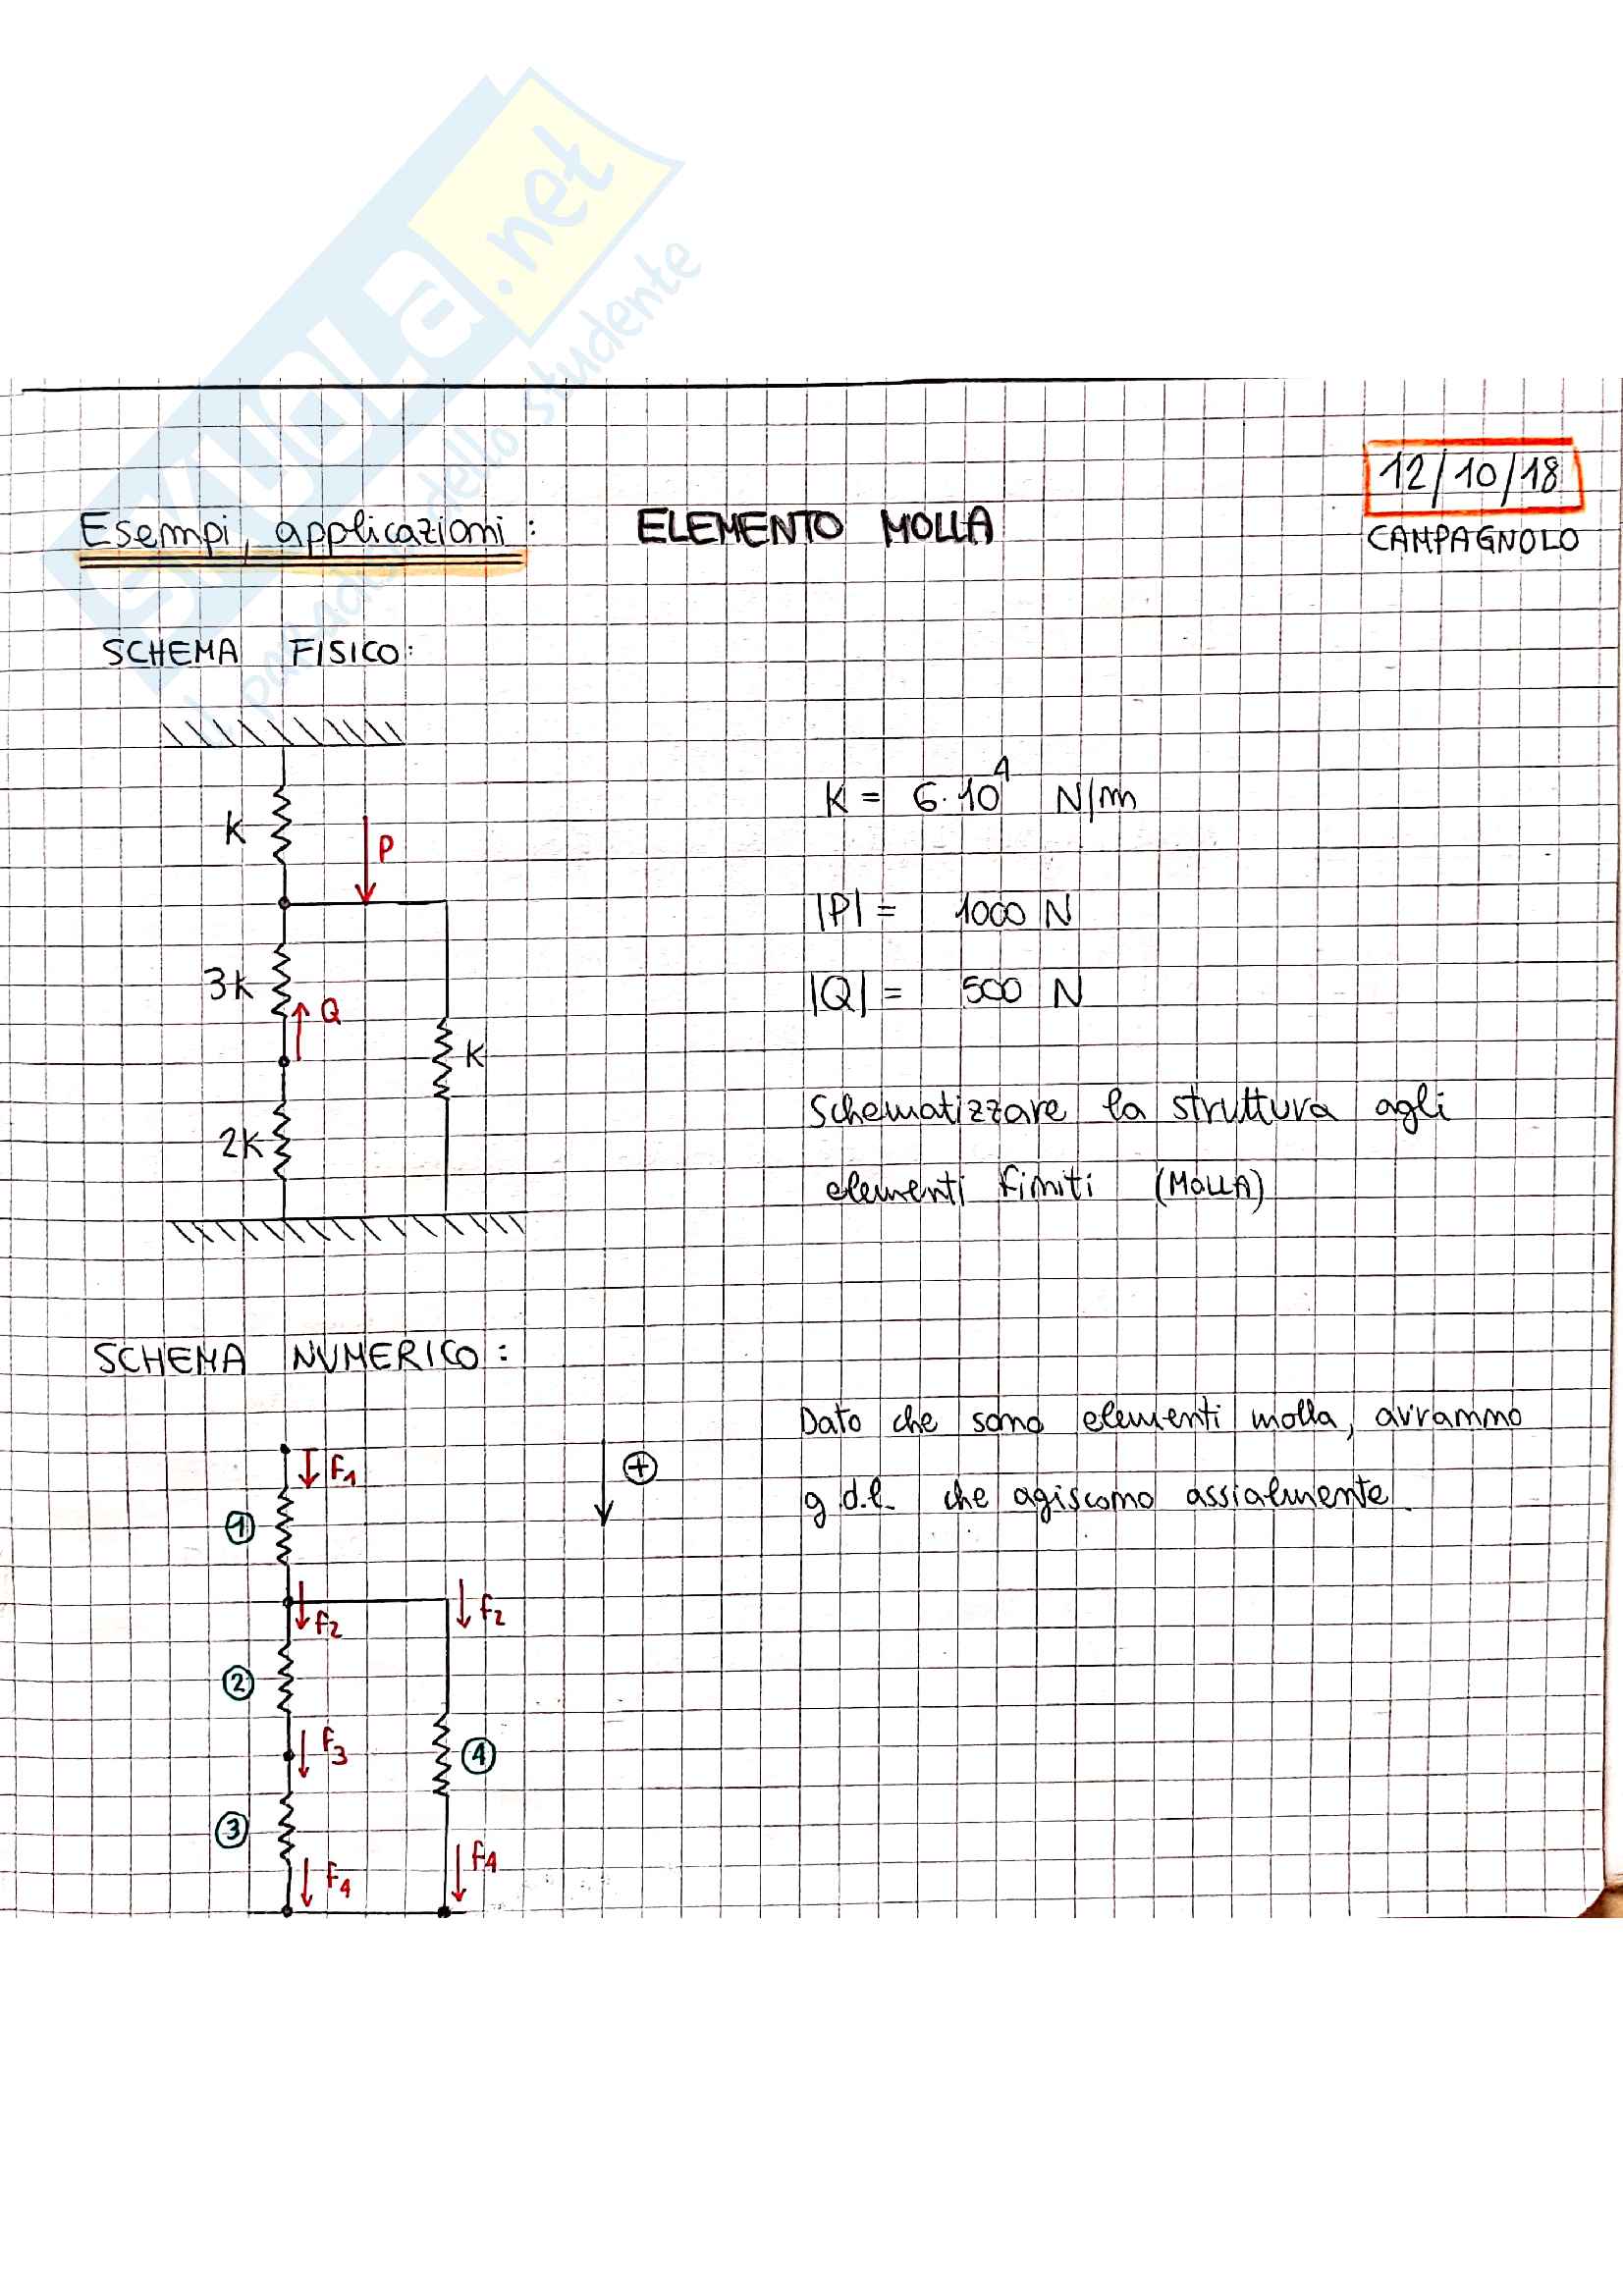 SKUOLA.net
il paradiso dello studente
12/10/18
Esempi, applicazioni: ELEMENTO MOLLA
CAMPAGNOLO
SCHEMA FISICO:
K
P
3K
Q
K
2K
K = 6·10⁴ N/m
|P| = 1000 N
|Q| = 500 N
Schematizzare la struttura agli
elementi finiti (MOLLA)
SCHEMA NUMERICO:
F₁
+
1
F₂
F₂
2
F₃
4
3
F₄
F₄
Dato che sono elementi molla, avranno
g.d.l. che agiscono assialmente.